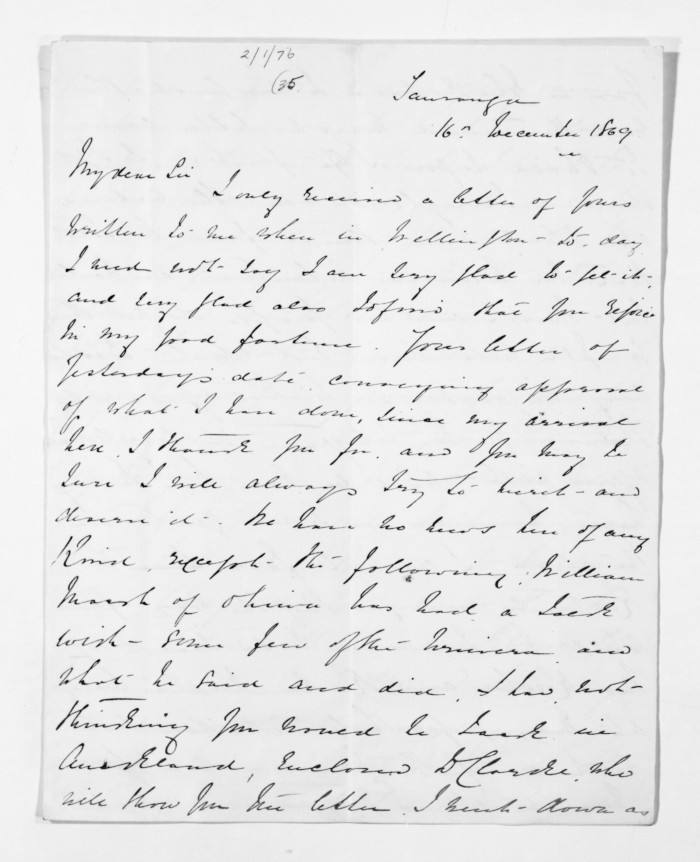 2/1/76
(35.
Tauranga
16th December 1869
My dear Sir
I only received a letter of yours
written to me when in Wellington - to day
I need not say I am very glad to get it,
and very glad also to find that you rejoice
in my good fortune. Your letter of
Yesterday's date conveying approval
of what I have done, since my arrival
here, I thank you for, and you may be
sure I will always try to merit and
deserve it. We have no news here of any
Kind, except the following. William
Marsh of Ohiwa has had a talk
with some few of the Urewera and
what he said and did, I have not
thinking you would be back in
Auckland, enclosed D Clarke, who
will show you the letter. I went down as